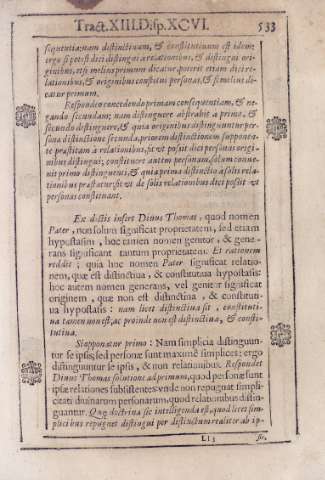 Tract. XIII. Disp. XCVI. 533
sequutia: nam distinctiuum, & constitutiuum est idem:
ergo si potest dici distingui a relationibus, & distingui ori-
ginibus, etsi melius primum dicatur, poterit etiam dici re-
lationibus, & originibus constitui personas, & si melius di-
catur primum.
Respondeo concedendo primam consequentiam, & ne-
gando secundam; nam distinguere abstrahit a prima, &
secundo distinguere, & quia originibus distinguuntur per-
sonæ distinctione secunda, priorem distinctionem supponen-
te præstitam à relationibus, sit vt possit dici personas ori-
ginibus distingui; constituere autem personam, solum conue-
nit primo distinguenti, & quia prima distinctio à solis rela-
tionibus præstatur, fit vt de solis relationibus dici possit vt
personas constituant.
Ex dictis infert Diuus Thomas, quod nomen
Pater, non solum significat proprietatem, sed etiam
hypostasim, hoc tamen nomen genitor, & gene-
rans significant tantum proprietatem. Et rationem
reddit; quia hoc nomen Pater significat relatio-
nem, quæ est distinctiua, & constitutiua hypostasis:
hoc autem nomen generans, vel genitor significat
originem, quæ non est distinctiua, & constituti-
ua hypostasis: nam licet distinctiua sit, constituti-
ua tamen non est, ac proinde non est distinctiua, & consti-
tutiua.
Supponatur primo: Nam simplicia distinguun-
tur se ipsis; sed personæ sunt maximè simplices; ergo
distinguuntur se ipsis, & non relationibus. Respondet
Diuus Thomas solutione ad primum, quod personæ sunt
ipsæ relationes subsistentes: vnde non repugnat simpli-
citati diuinarum personarum, quod relationibus distin-
guantur. Quæ doctrina sic intelligenda est, quod licet sim-
plicibus repugnet distingui per distinctum realiter ab ip-
Ll 3 sis,